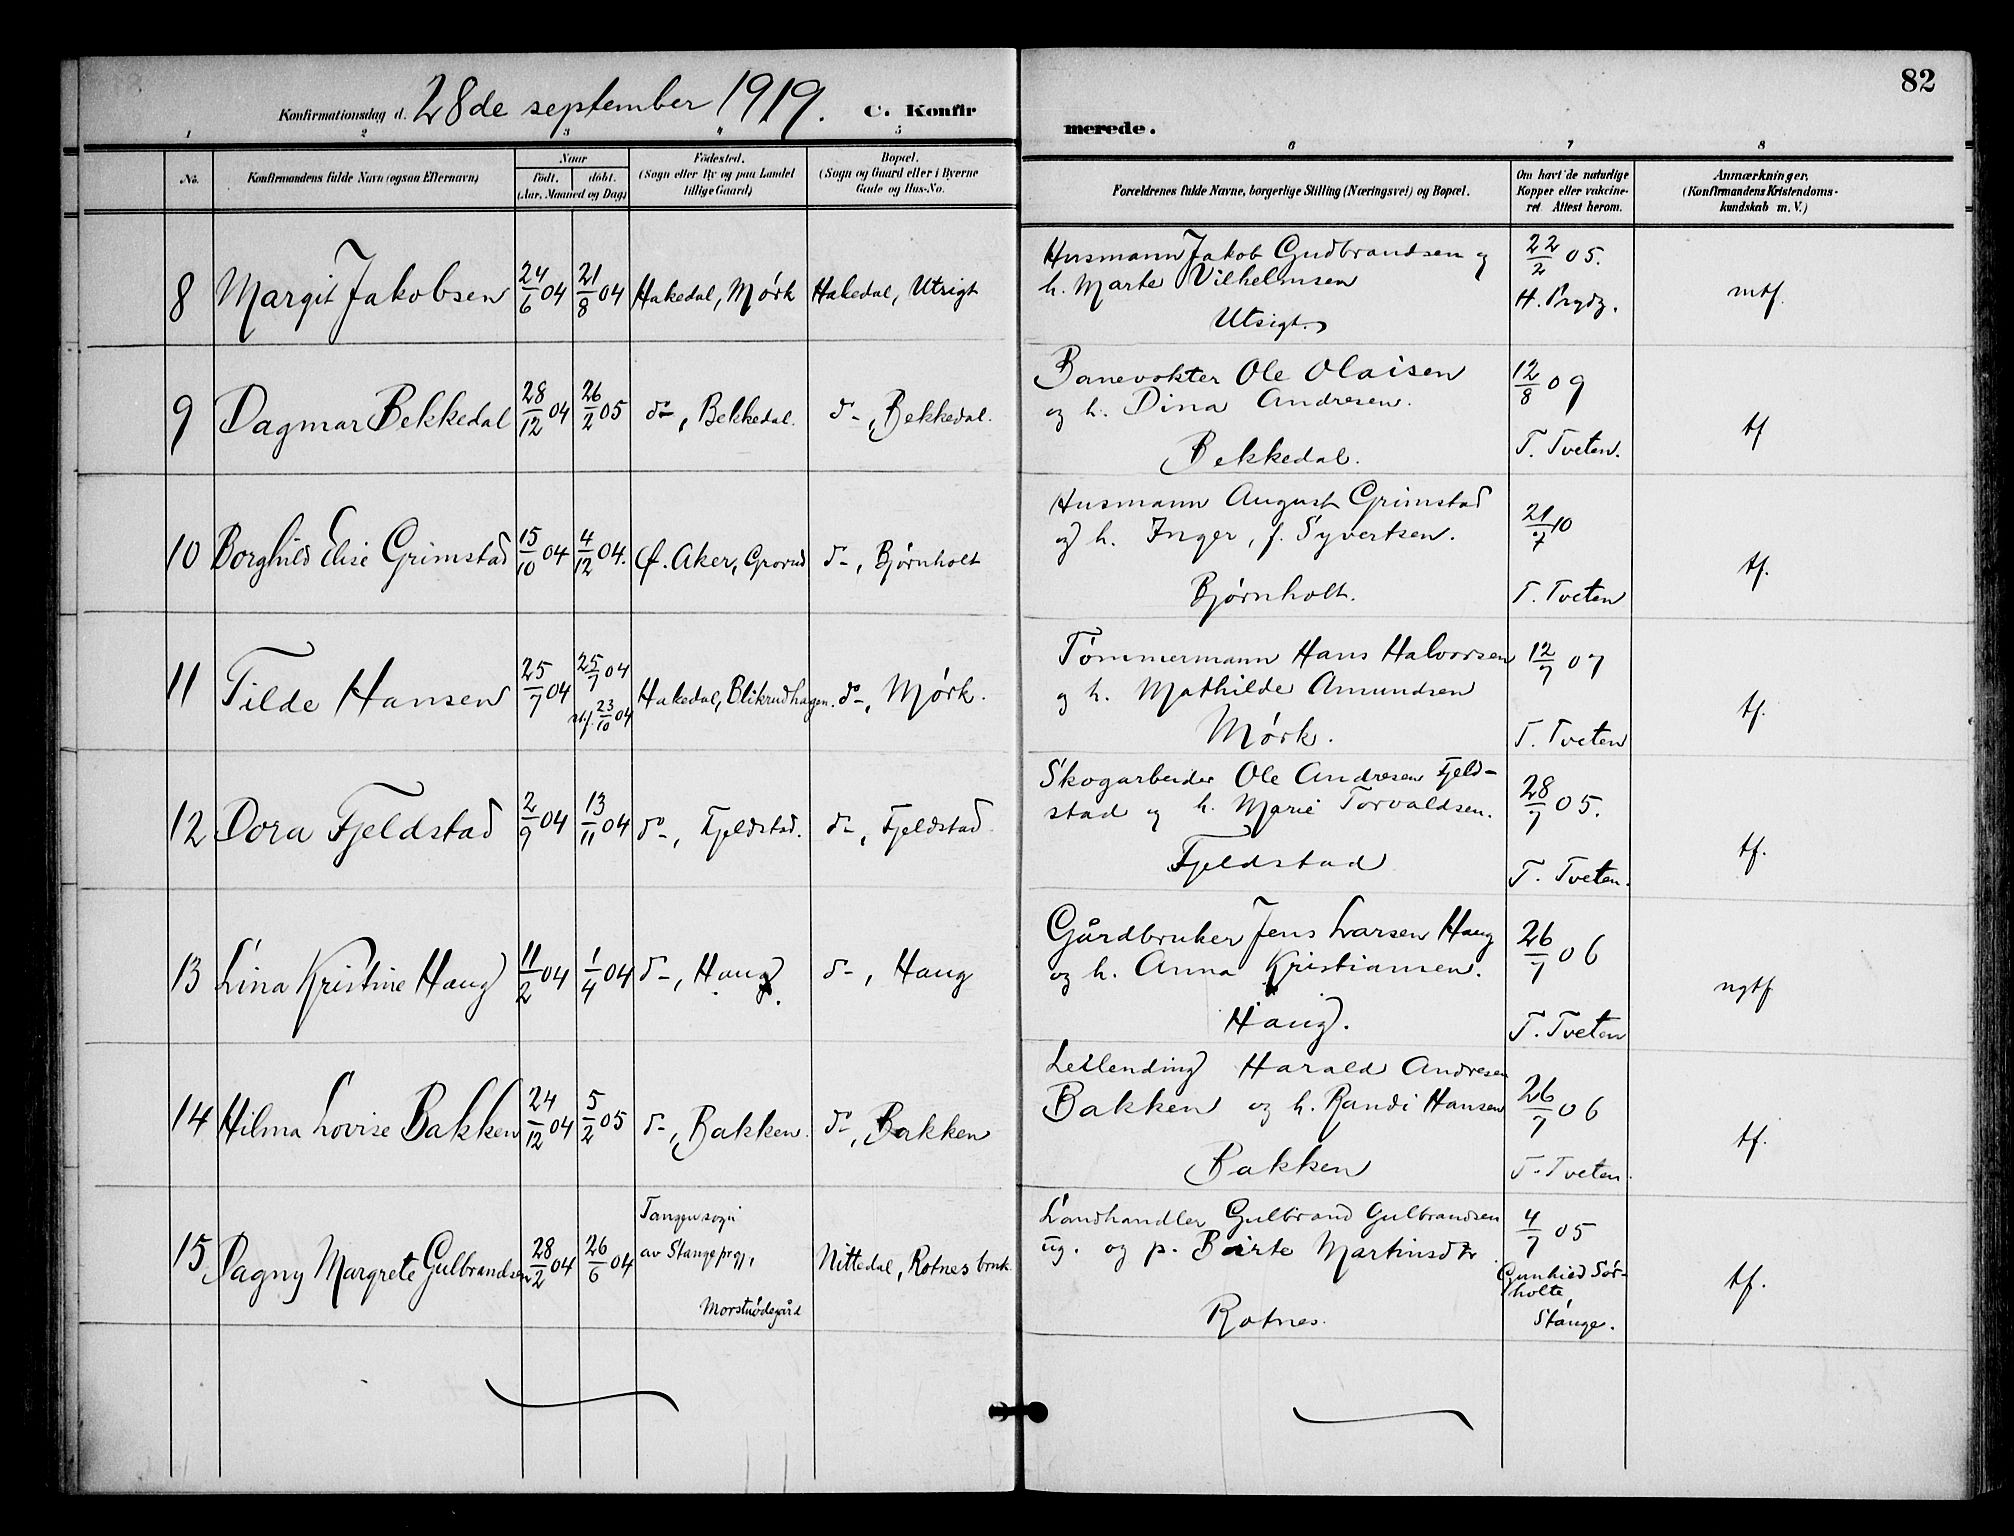 82
Konfirmationsdag d. 28de september 1919. C. Konfir
merede.
1 2 3 4 5 6 7 8
No. Konfirmandens fulde Navn (ogsaa Efternavn) Naar født. døbt. (Aar, Maaned og Dag)
Födested. (Sogn eller By og paa Landet tillige Gaard)
Bopæl. (Sogn og Gaard eller i Byerne Gade og Hus-No.
Forældrenes fulde Navne, borgerlige Stilling (Næringsvei) og Bopæl.
Om havt de naturlige Kopper eller vakcineret. Attest herom.
Anmærkninger. (Konfirmandens Kristendomskundskab m. V.)
8 Margit Jakobsen 24/6 04 21/8 04 Hakedal, Mørk Hakedal, Utsigt
Husmann Jakob Gudbrandsen og 22/2 05.
h. Marte Vilhelmsen H. Prydz. mtf.
Utsigt.
9 Dagmar Bekkedal 28/12 04 26/2 05 do-, Bekkedal. do-, Bekkedal.
Banevokter Ole Olaisen 12/8 09
og h. Dina Andresen. tf
Bekkedal. T. Tveten.
10 Borghild Elise Grimstad 15/10 04 4/12 04. Ø. Aker, Grorud do-, Bjørnholt
Husmann August Grimstad 21/7 10
og h. Inger, f. Syvertsen. tf.
Bjørnholt. T. Tveten
11 Tilde Hansen 25/7 04 25/7 04 st.f. 23/10 04 Hakedal, Blikrudhagen. do-, Mørk.
Tømmermann Hans Halvorsen 12/7 07
og h. Mathilde Amundsen tf.
Mørk. T. Tveten
12 Dora Fjeldstad 2/9 04 13/11 04 do-, Fjeldstad. do-, Fjeldstad.
Skogarbeider Ole Andresen Fjeld- 28/7 05.
stad og h. Marie Torvaldsen. tf.
Fjeldstad T. Tveten.
13 Lina Kristine Haug 11/2 04 1/4 04 do-, Haug. do-, Haug
Gårdbruker Jens Larsen Haug 26/7 06
og h. Anna Kristiansen. ngtf
Haug. T. Tveten
14 Hilma Lovise Bakken 24/12 04 5/2 05 do-, Bakken. do-, Bakken
Leilending Harald Andresen
Bakken og h. Randi Hansen 26/7 06 tf.
Bakken T. Tveten.
15 Dagny Margrete Gulbrandsen 28/2 04 26/6 04 Tangen sogn av Stange prgj., Nittedal, Rotnes bruk.
Landhandler Gulbrand Gulbrandsen 4/7 05
ug. og p. Birte Martinsdtr
Gunhild Sør-
holte, tf.
Rotnes. Stange.